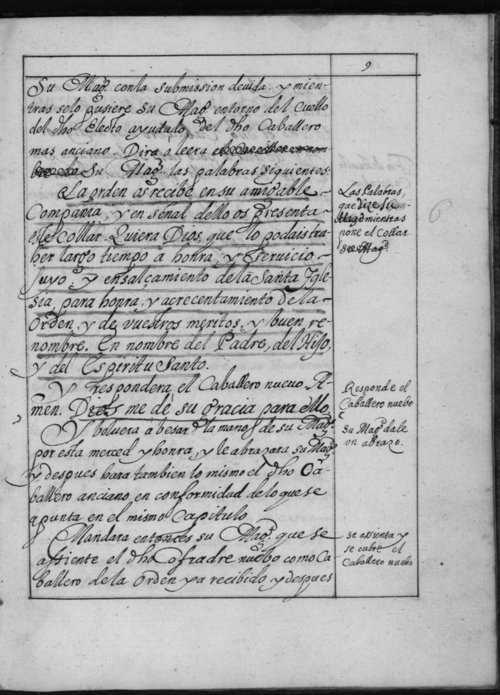 9
Su Magd. con la submission devida. y mien-
tras selo pusiere Su Magd. entorno del Cuello
del dho Electo ayudado del dho Caballero
mas anciano. Dira o leera
Su Magd. las palabras siguientes:
La orden os recibe en su amigable
Compañia, y en señal dello os presenta
este Collar. Quiera Dios, que lo podais tra-
her largo tiempo a honra, y servicio
suyo y ensalçamiento de la Santa Igle-
sia, para honra, y acrecentamiento de la
Orden, y de vuestros meritos, y buen re-
nombre. En nombre del Padre, del Hijo,
y del Espiritu Santo.
Y respondera el Caballero nuevo. A-
men. Dios me dè su gracia para ello.
Y bolvera a besar la mano de su Magd.
por esta merced y honra, y le abrazara su Magd.
y despues hara tambien lo mismo el dho Ca-
ballero anciano en conformidad de lo que se
apunta en el mismo Capitulo
Mandara entonces su Magd. que se
assiente el dho cofradre nuebo como Ca-
ballero de la Orden ya recibido, y despues
Las Palabras,
que dize su
Magd mientras
pone el Collar
su Magd.
Responde el
Caballero nuebo
su Magd dale
un abrazo.
se assienta y
se cubre el
Caballero nuebo
6